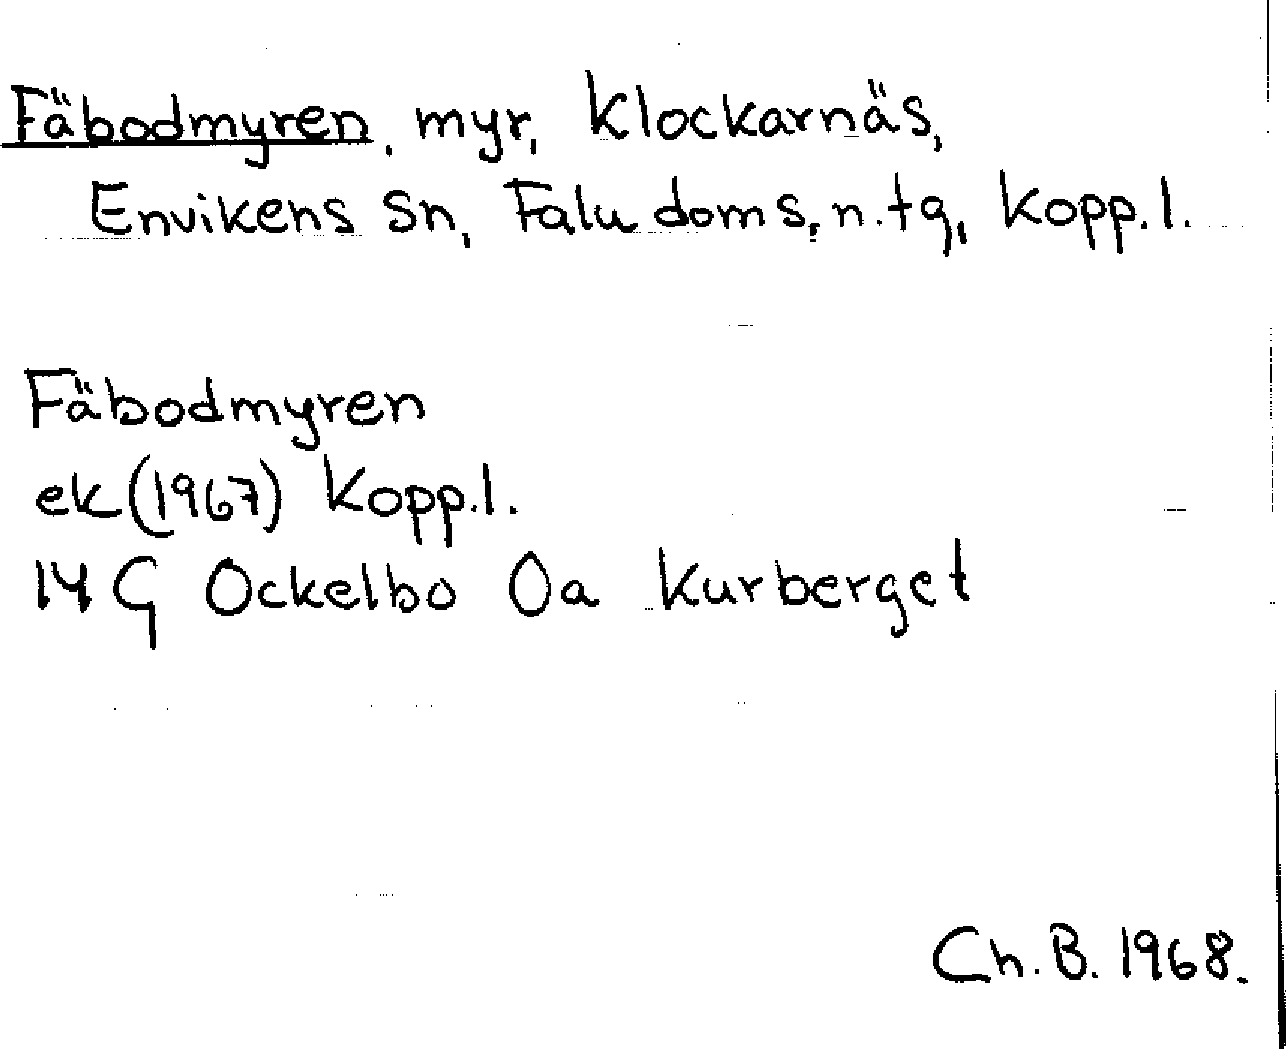 Fäbodmyren, myr, Klockarnäs,
Envikens sn, Falu doms. n. tg, Kopp. l.
Fäbodmyren
ek (1967) Kopp. l.
14 G Ockelbo 0a Kurberget
Ch. B. 1968.